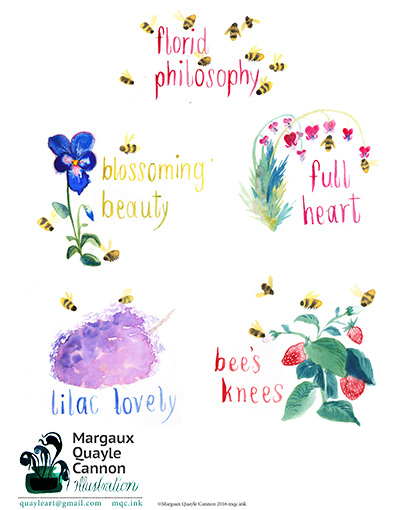 florid
philosophy
blossoming
beauty
full
heart
lilac lovely
bee's
knees
Margaux
Quayle
Cannon
Illustration
quayleart@gmail.com mqc.ink
©Margaux Quayle Cannon 2016 mqc.ink